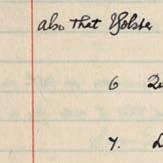 also that Holster
6
7.